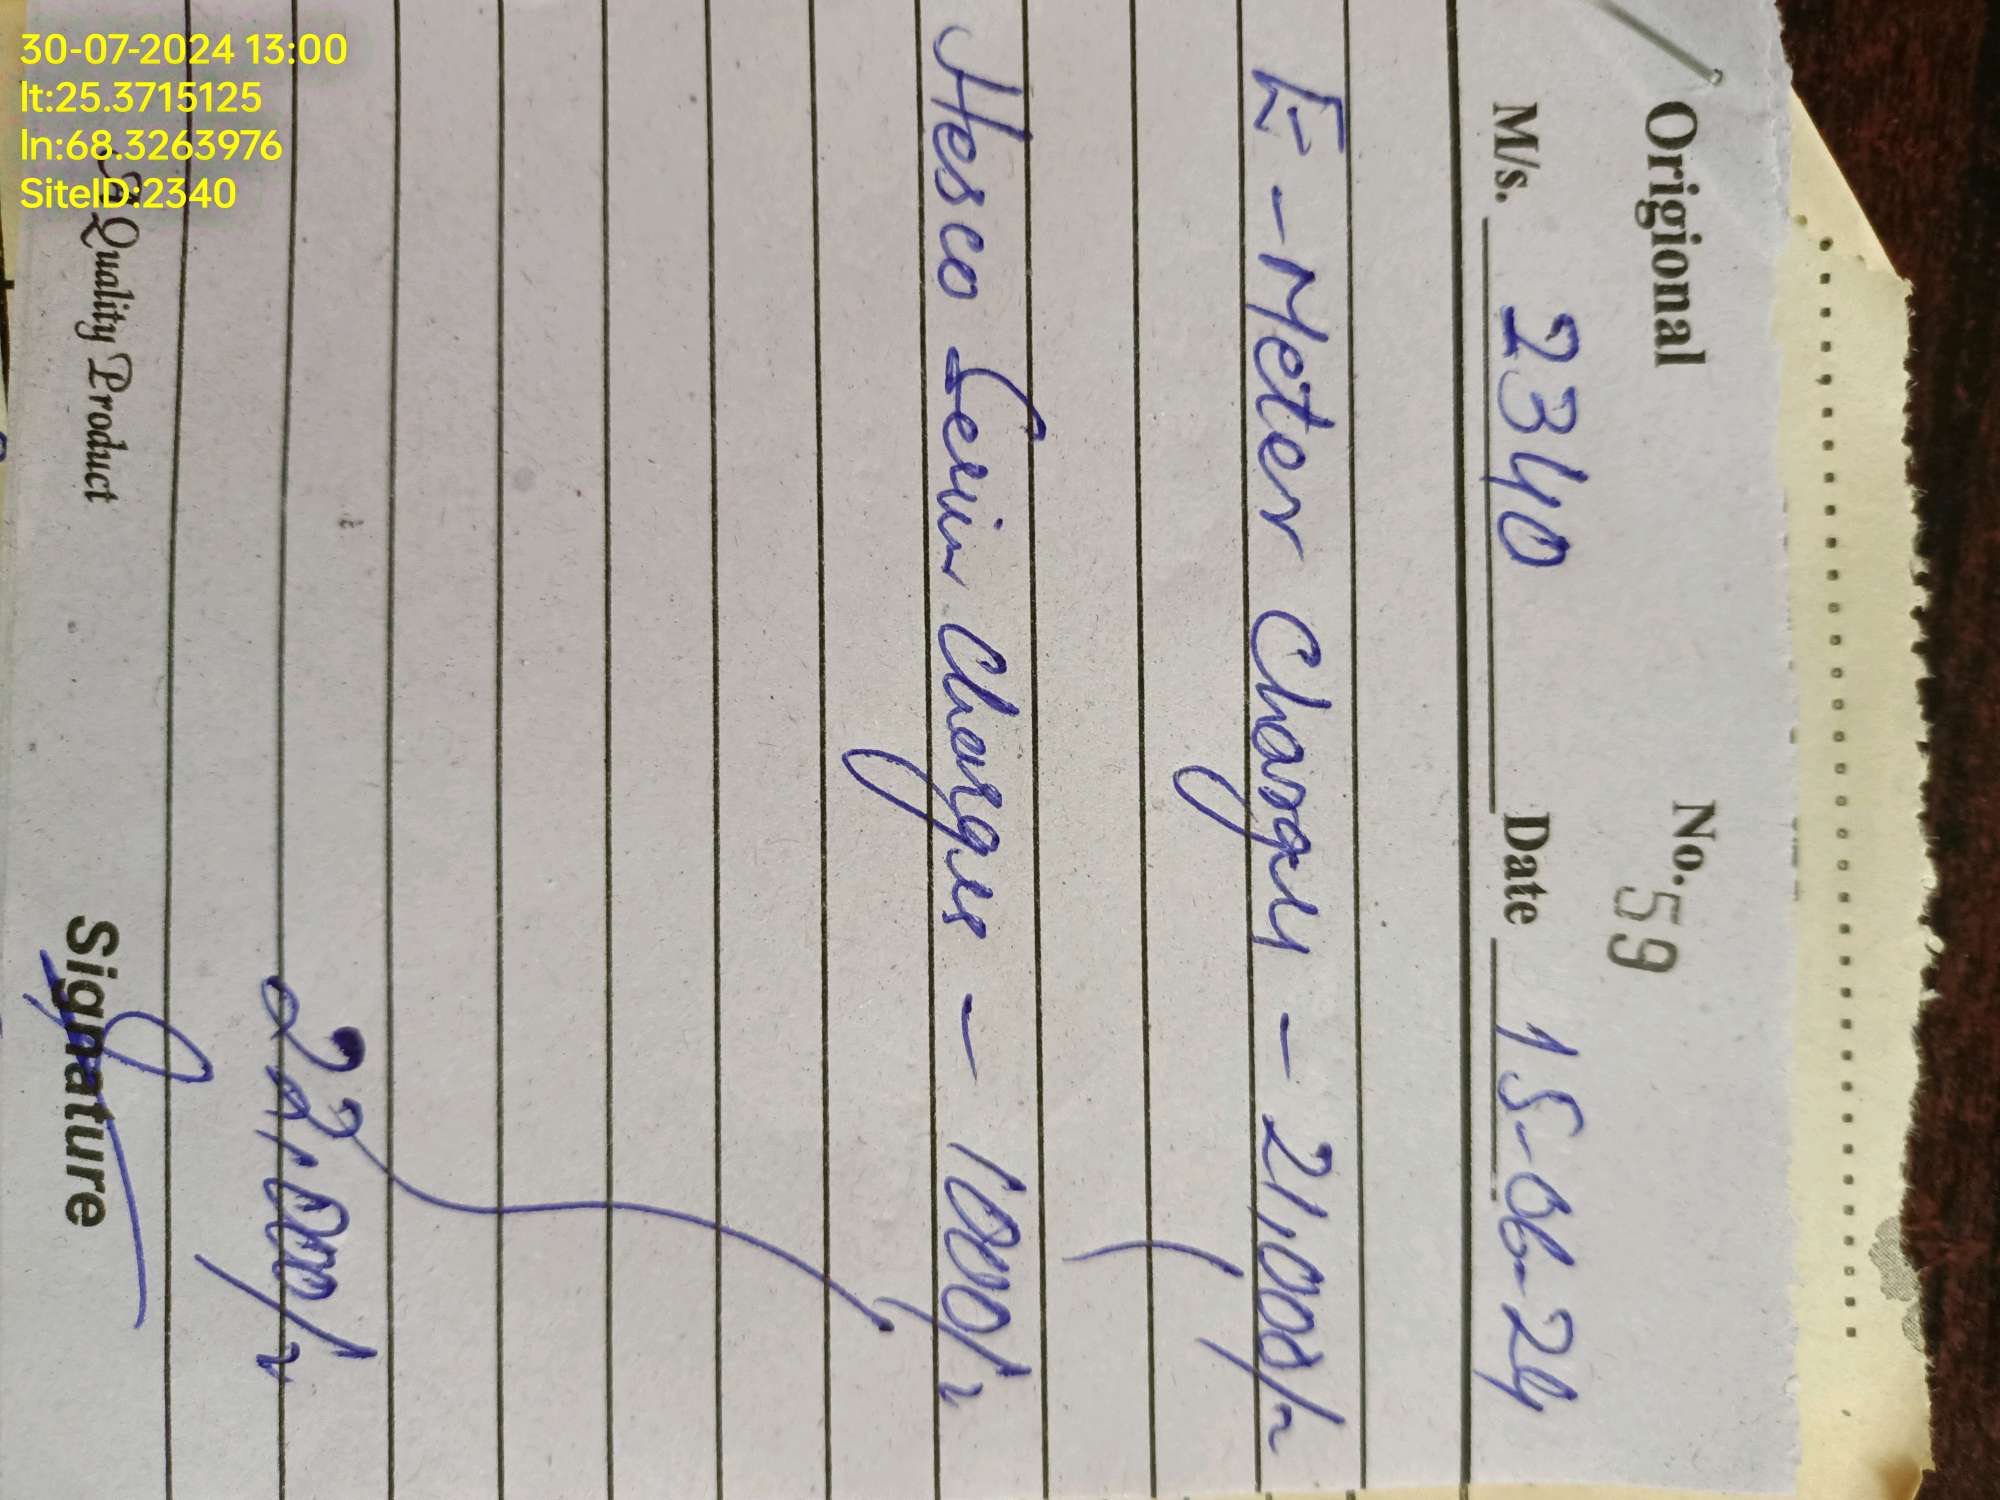 30-07-2024 13:00
lt:25.3715125
ln:68.3263976
SiteID:2340
Origional No. 59
M/s. 2340 Date 15-06-24
E-Meter Charges - 21,000/~
Hesco Charges - 1000/~
22,000/~
Quality Product Signature